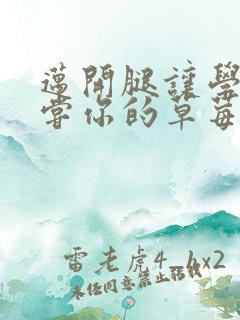 邁開腿讓學
嘗你的草莓
雷老虎4.hx2
未经同意禁止转载